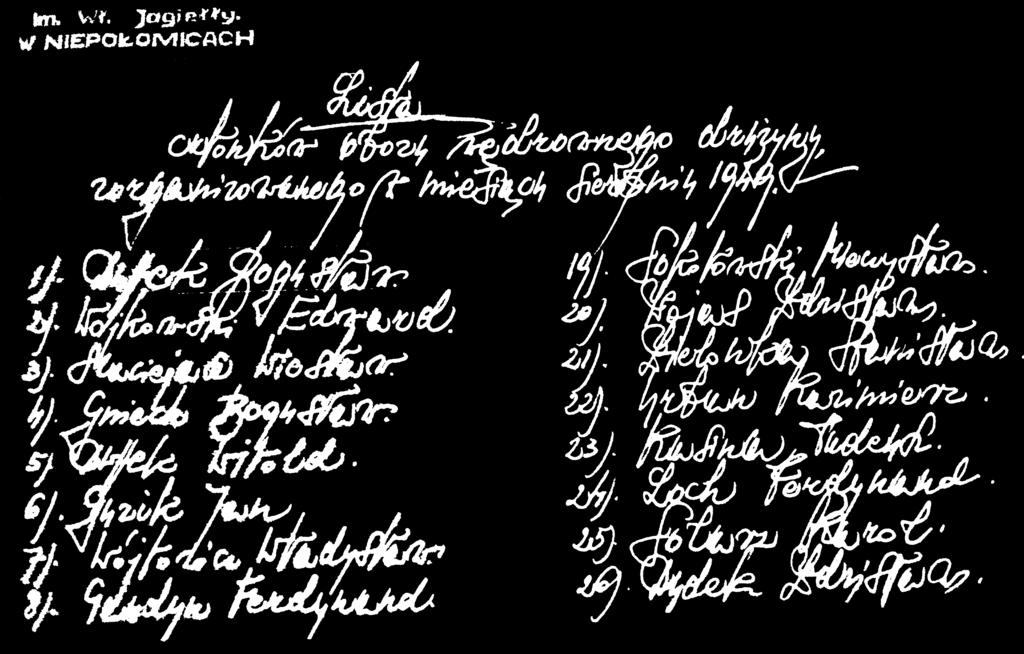 im. Wł. Jagiełły.
W NIEPOŁOMICACH
Lista
członków obozu wędrownego drużyny,
zorganizowanego w miesiącu sierpniu 1949.
1). Bogusław.
2). Wójkowski Edward.
3). Wiesław.
4). Bogusław.
5) Witold.
6). Guzik Jan
7). Wójtowicz Władysław.
8). Ferdynand.
19). Sokołowski Mieczysław.
20). Wojas Zdzisław.
21). Stanisław.
22). Urban Kazimierz.
23). Kasina Tadeusz.
24). Loch Ferdynand.
25). Karol.
26). Dudek Zdzisław.